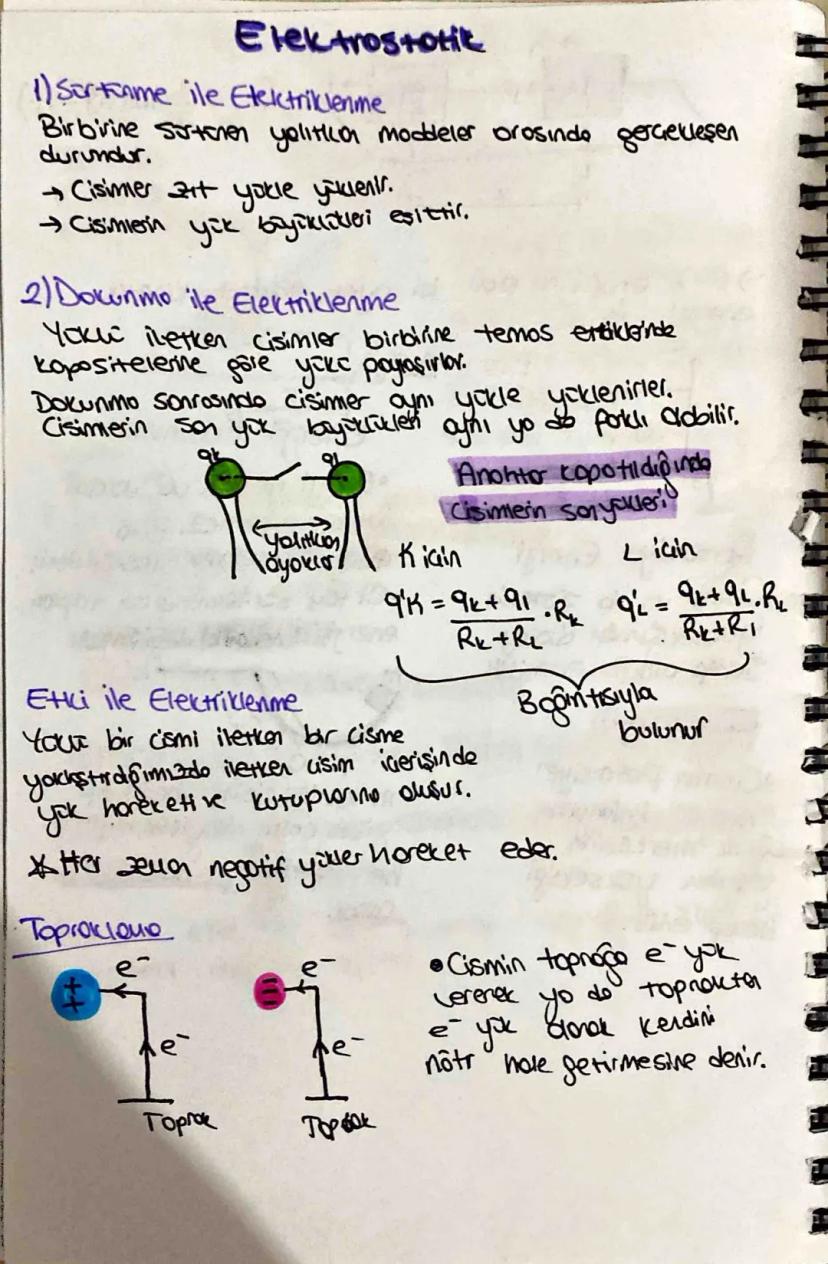 Elektrostatik
1) Sürtünme ile Elektriklenme
Birbirine sürtünen yalıtkan maddeler arasında gerçekleşen
durumdur.
→ Cisimler zıt yükle yüklenir.
→ Cisimlerin yük büyüklükleri eşittir.
2) Dokunma ile Elektriklenme
Yüklü iletken cisimler birbirine temas ettiklerinde
kapasitelerine göre yükü paylaşırlar.
Dokunma sonrasında cisimler aynı yükle yüklenirler.
Cisimlerin son yük büyüklükleri aynı ya da farklı olabilir.
qk qL
yalıtkan
ayaklar
Anahtar kapatıldığında
Cisimlerin son yükleri
K için L için
q'K = qk + qL / RK + RL . Rk q'L = qk + qL / Rk + RL . RL
Bağıntısıyla
bulunur
Etki ile Elektriklenme
Yüklü bir cismi iletken bir cisme
yaklaştırdığımızda iletken cisim içerisinde
yük hareketi ve kutuplanma oluşur.
* Her zaman negatif yükler hareket eder.
Topraklama
e⁻ e⁻
++
++
e⁻ e⁻
Toprak Toprak
• Cismin toprağa e⁻ yük
vererek ya da topraktan
e⁻ yük alarak kendini
nötr hale getirmesine denir.